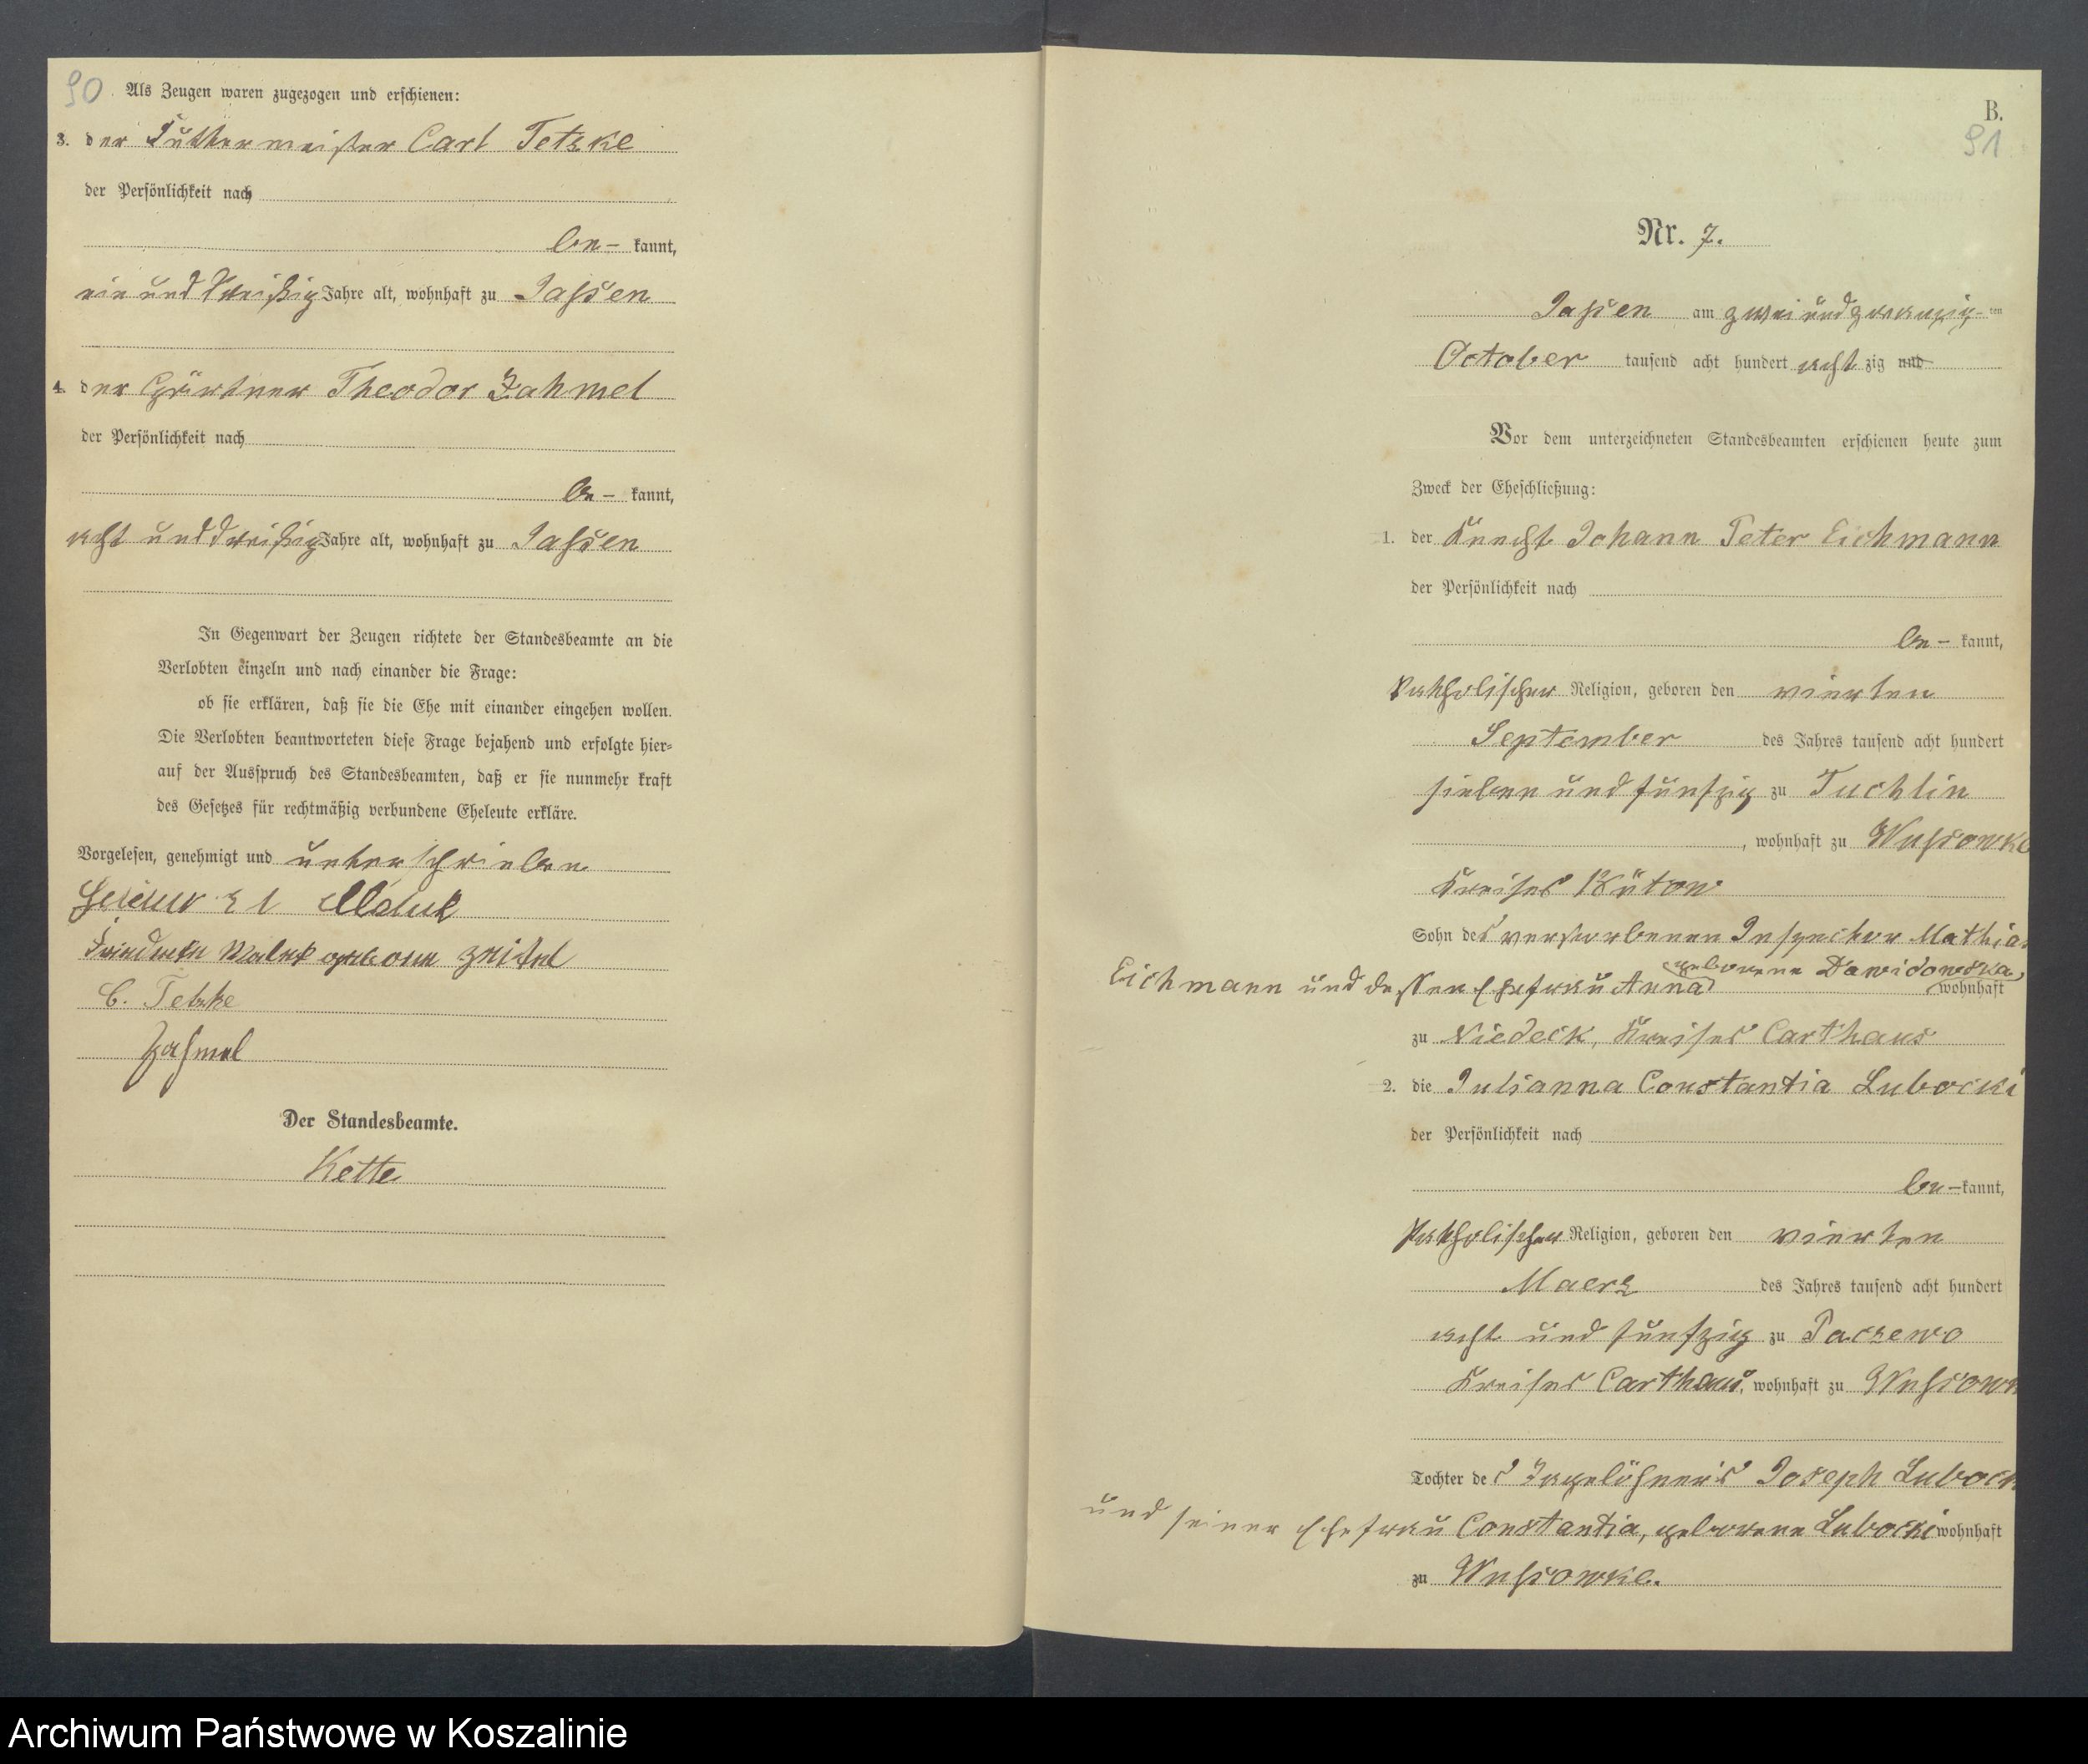 90
Als Zeugen waren zugezogen und erschienen:
3. der Futtermeister Carl Tetzke
der Persönlichkeit nach
be- kannt,
ein und dreißig Jahre alt, wohnhaft zu Jassen
4. der Gärtner Theodor Zahmel
der Persönlichkeit nach
be- kannt,
acht und dreißig Jahre alt, wohnhaft zu Jassen
In Gegenwart der Zeugen richtete der Standesbeamte an die
Verlobten einzeln und nach einander die Frage:
ob sie erklären, daß sie die Ehe mit einander eingehen wollen.
Die Verlobten beantworteten diese Frage bejahend und erfolgte hier=
auf der Ausspruch des Standesbeamten, daß er sie nunmehr kraft
des Gesetzes für rechtmäßig verbundene Eheleute erkläre.
Vorgelesen, genehmigt und unterschrieben
geborene
C. Tetzke
Zahmel
Der Standesbeamte.
Kette
B.
91
Nr. 7.
Jassen am zwei und zwanzig- ten
October tausend acht hundert acht zig und
Vor dem unterzeichneten Standesbeamten erschienen heute zum
Zweck der Eheschließung:
1. der Knecht Johann Peter Eichmann
der Persönlichkeit nach
be- kannt,
katholischer Religion, geboren den vierten
September des Jahres tausend acht hundert
sieben und fünfzig zu Tuchlin
, wohnhaft zu Wussowke
Kreises Bütow
Sohn des verstorbenen Inspector Mathias
geborene Dawidowska,
Eichmann und dessen Ehefrau Anna wohnhaft
zu Niedeck, Kreises Carthaus
2. die Julianna Constantia Lubocki
der Persönlichkeit nach
be- kannt,
katholischer Religion, geboren den vierten
Maerz des Jahres tausend acht hundert
acht und fünfzig zu Paczewo
Kreises Carthaus, wohnhaft zu Wussowk
Tochter des Tagelöhners Joseph Lubock
und seiner Ehefrau Constantia, geborene Lubocki wohnhaft
zu Wussowke.
Archiwum Państwowe w Koszalinie